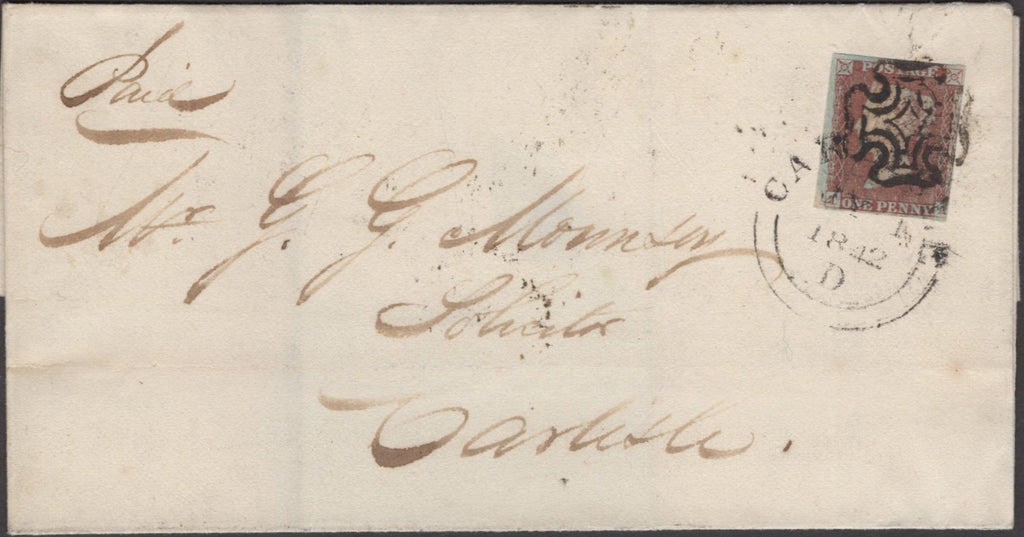 Paid
POSTAGE
ONE PENNY
CA
1842
D
Mr. G. G. Mounsey
Solicitor
Carlisle.